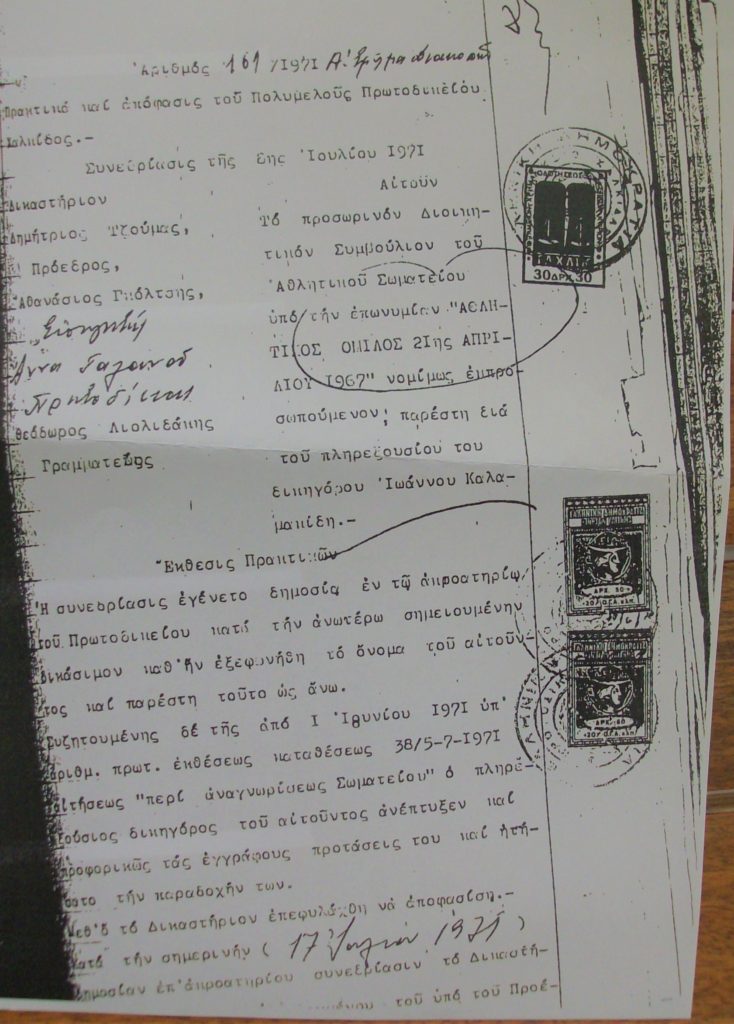 Ἀριθμός 161/1971 Α.
Πρακτικά καί ἀπόφασις τοῦ Πολυμελοῦς Πρωτοδικείου
Χαλκίδος.-
Συνεδρίασις τῆς 8ης Ἰουλίου 1971
Δικαστήριον
Δημήτριος Τζούμας,
Πρόεδρος,
Ἀθανάσιος Γκόλτσης,
Εἰσηγητής
Ἄννα
Πρωτοδίκαι
Θεόδωρος Λιολιδάκης
Γραμματεύς
Αἰτοῦν
Τό προσωρινόν Διοικη-
τικόν Συμβούλιον τοῦ
Ἀθλητικοῦ Σωματείου
ὑπό τήν ἐπωνυμίαν "ΑΘΛΗ-
ΤΙΚΟΣ ΟΜΙΛΟΣ 2Ιης ΑΠΡΙ-
ΛΙΟΥ Ι967" νομίμως ἐκπρο-
σωπούμενον; παρέστη διά
τοῦ πληρεξουσίου του
δικηγόρου Ἰωάννου Καλα-
μακίδη.-
Ἔκθεσις Πρακτικῶν
Ἡ συνεδρίασις ἐγένετο δημοσίᾳ ἐν τῷ ἀκροατηρίῳ
τοῦ Πρωτοδικείου κατά τήν ἀνωτέρω σημειουμένην
δικάσιμον καθ'ἥν ἐξεφωνήθη τό ὄνομα τοῦ αἰτοῦν-
τος καί παρέστη τοῦτο ὡς ἄνω.
Συζητουμένης δέ τῆς ἀπό Ι Ἰουνίου Ι97Ι ὑπ'
ἀριθμ. πρωτ. ἐκθέσεως καταθέσεως 38/5-7-Ι97Ι
αἰτήσεως "περί ἀναγνωρίσεως Σωματείου" ὁ πληρε-
ξούσιος δικηγόρος τοῦ αἰτοῦντος ἀνέπτυξεν καί
προφορικῶς τάς ἐγγράφους προτάσεις του καί ᾐτή-
σατο τήν παραδοχήν των.
Μεθ'ὅ τό Δικαστήριον ἐπεφυλάχθη νά ἀποφασίσῃ.-
Κατά τήν σημερινήν (17 Ἰουλίου 1971)
δημοσίαν ἐπ'ἀκροατηρίου συνεδρίασιν τό Δικαστή-
τοῦ ὑπό τοῦ Προέ-
30 ΔΡΧ 30